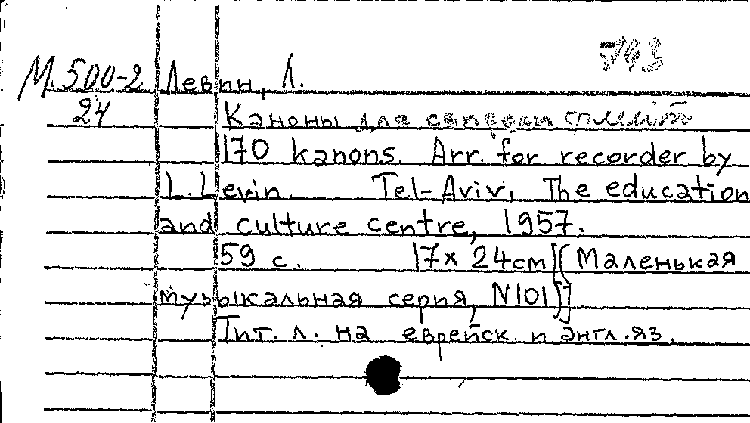 743
М.500-2 Левин, Л.
24
Каноны для
170 kanons. Arr. for recorder by
L. Levin. Tel-Aviv, The education
and culture centre, 1957.
59 с. 17x24cm [(Маленькая
музыкальная серия, N101)]
Тит. л. на еврейск и англ. яз.